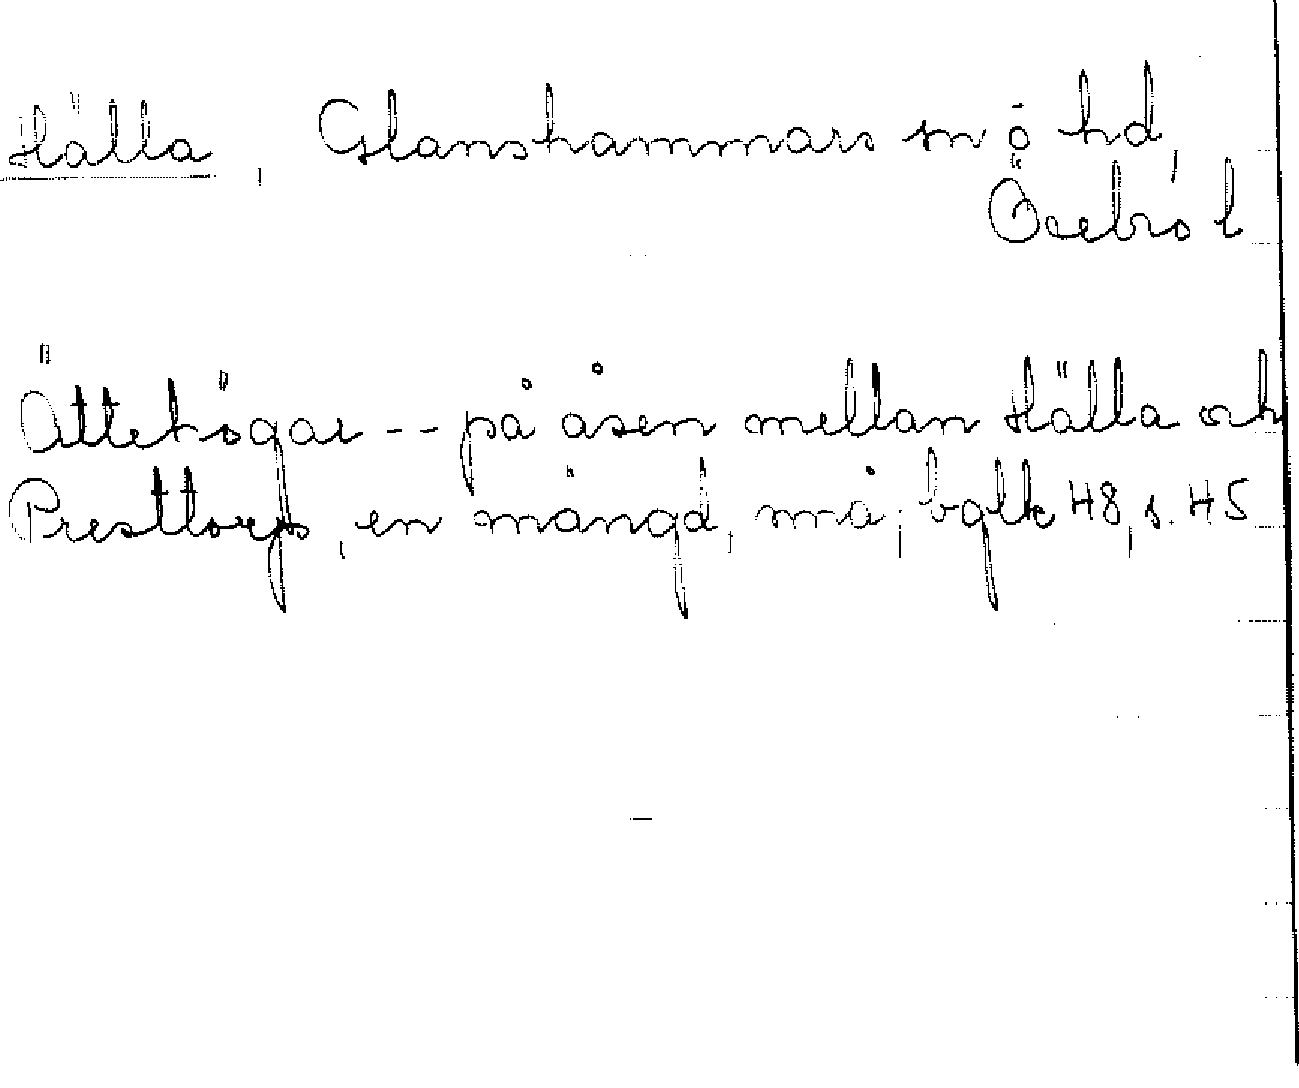 Hälla, Glanshammars sn ö hd,
Örebro l
Ättehögar -- på åsen mellan Hälla och
Presttorp, en mängd, små; bglk 48, s. 45